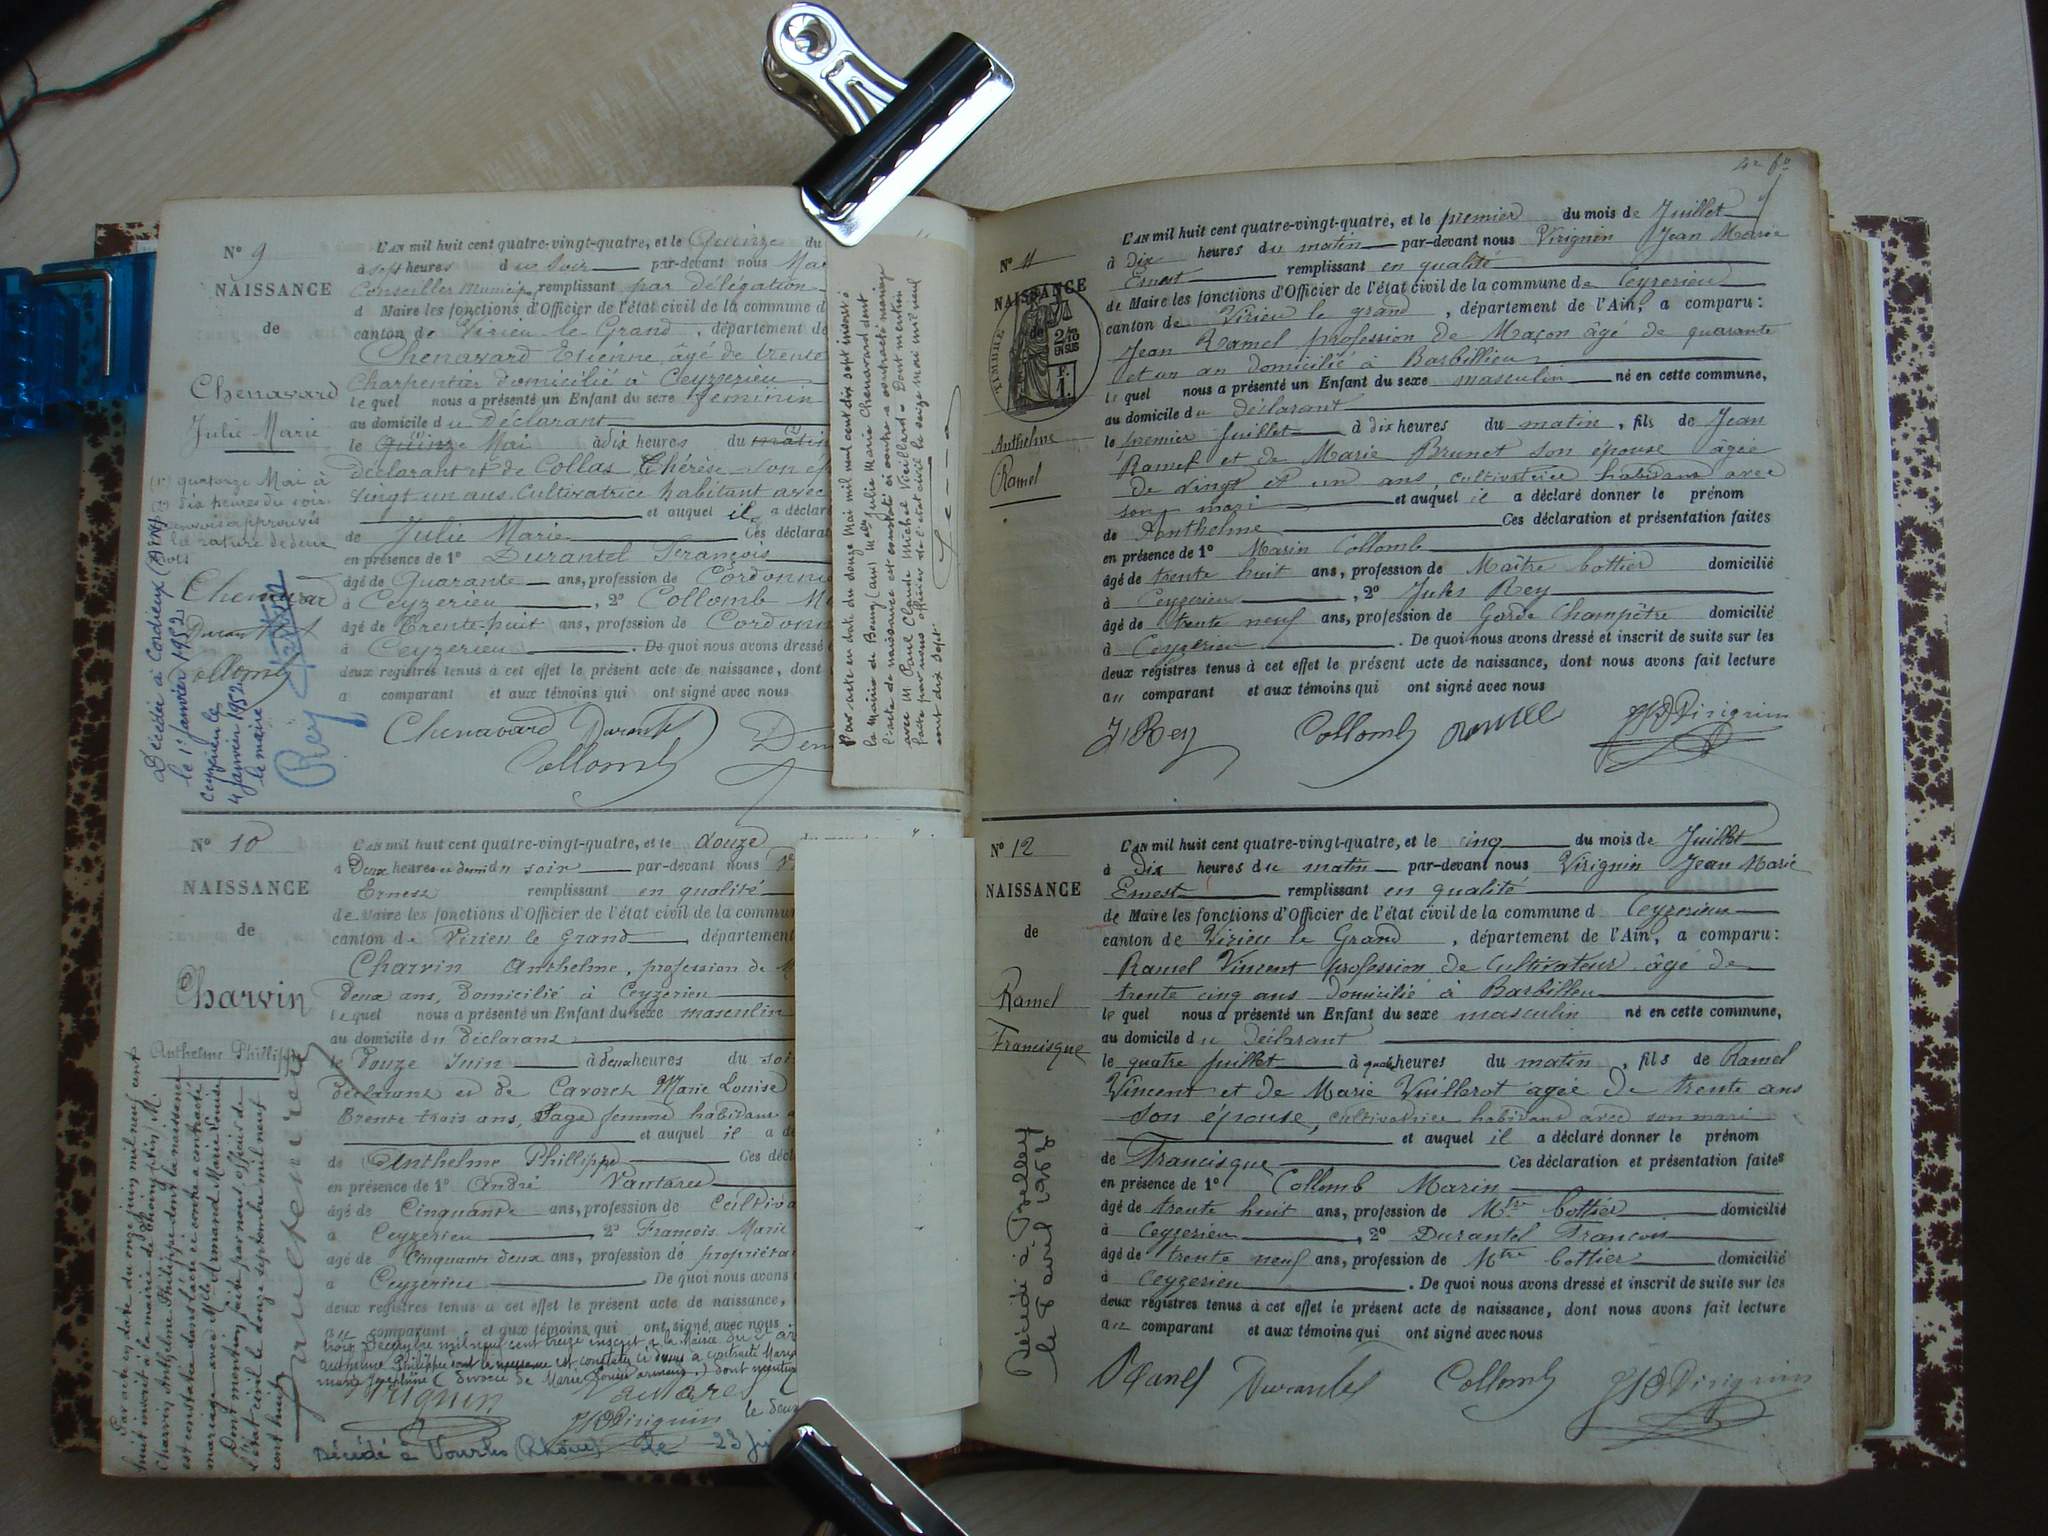 N° 9
NAISSANCE
de
Chenavard
Julie Marie
(1°) quatorze Mai à
dix heures du soir
renvois approuvés
la rature de deux
mots
Chenavard
Durantel
Collomb
Décédée à Cordieux (Ain)
le 1er janvier 1952
Ceyzerieu le
4 janvier 1952
le maire
Rey
L'AN mil huit cent quatre-vingt-quatre, et le Quinze du
à sept heures du soir par-devant nous
Conseiller Municip. remplissant par délégation
d Maire les fonctions d'Officier de l'état civil de la commune d
canton de Virieu le Grand, département de
Chenavard Etienne, âgé de trente
Charpentier domicilié à Ceyzerieu
lequel nous a présenté un Enfant du sexe féminin
au domicile du Déclarant
le Quinze Mai à dix heures du matin
déclarant et de Collas Thérèse son ép
vingt un ans, cultivatrice habitant avec
et auquel il a déclaré
de Julie Marie Ces déclarat
en présence de 1° Durantel François
âgé de Quarante ans, profession de Cordonnie
à Ceyzerieu, 2° Collomb Ma
âgé de Trente-huit ans, profession de Cordonn
à Ceyzerieu. De quoi nous avons dressé
deux registres tenus à cet effet le présent acte de naissance, dont
a comparant et aux témoins qui ont signé avec nous
Chenavard Durantel
Collomb
Par acte en date du douze Mai mil neuf cent dix sept inscrit à
la Mairie de Bourg (Ain) Melle Julie Marie Chenavard dont
l'acte de naissance est constaté ci contre a contracté mariage
avec M. Paul Claude Michel Vieillard. Dont mention
faite par nous officier de l'état civil le seize mai mil neuf
cent dix sept.
N° 10
NAISSANCE
de
Charvin
Anthelme Phillippe
Par acte en date du onze juin mil neuf cent
huit inscrit à la mairie de M.
Charvin Anthelme Philippe dont la naissance
est constatée dans l'acte ci contre a contracté
mariage avec Melle Armand Marie Louise
Dont mention faite par nous officier de
l'état civil le douze septembre mil neuf
cent huit
L'AN mil huit cent quatre-vingt-quatre, et le douze
à Deux heures et demi du soir par-devant nous
Ernest remplissant en qualité
de Maire les fonctions d'Officier de l'état civil de la commun
canton de Virieu le Grand, département
Charvin Anthelme, profession de
deux ans, Domicilié à Ceyzerieu
lequel nous a présenté un Enfant du sexe masculin
au domicile du Déclarant
le Douze Juin à deux heures du soi
déclarant et de Cavoret Marie Louise
Trente trois ans, Sage femme habitant a
et auquel il a dé
de Anthelme Phillippe Ces décl
en présence de 1° André Vantaret
âgé de Cinquante ans, profession de Cultiva
à Ceyzerieu, 2° François Marie
âgé de Cinquante deux ans, profession de propriéta
à Ceyzerieu. De quoi nous avons
deux registres tenus à cet effet le présent acte de naissance,
au comparant et aux témoins qui ont signé avec nous
trois Décembre mil neuf cent treize inscrit à la Mairie
Anthelme Philippe dont la naissance est constatée ci dessus a contracté Maria
marie Joséphine (divorcé de Marie Louise armand) dont mention
JB Virignin
Décédé à Vourles (Rhône) le 23
4e fo
N° 11
NAISSANCE
de
TIMBRE
2/10
EN SUS
F.
1.
Anthelme
Ramel
L'AN mil huit cent quatre-vingt-quatre, et le premier du mois de Juillet
à Dix heures du matin par-devant nous Virignin Jean Marie
Ernest remplissant en qualité
de Maire les fonctions d'Officier de l'état civil de la commune de Ceyzerieu
canton de Virieu le grand, département de l'Ain, a comparu:
Jean Ramel profession de Maçon âgé de quarante
et un an domicilié à Barbillieu
lequel nous a présenté un Enfant du sexe masculin né en cette commune,
au domicile du déclarant
le premier Juillet à dix heures du matin, fils de Jean
Ramel et de Marie Brunet son épouse âgée
de vingt et un ans, cultivatrice habitant avec
son mari et auquel il a déclaré donner le prénom
de Anthelme Ces déclaration et présentation faites
en présence de 1° Marin Collomb
âgé de trente huit ans, profession de Maître bottier domicilié
à Ceyzerieu, 2° Jules Rey
âgé de trente neuf ans, profession de Garde Champêtre domicilié
à Ceyzerieu. De quoi nous avons dressé et inscrit de suite sur les
deux registres tenus à cet effet le présent acte de naissance, dont nous avons fait lecture
au comparant et aux témoins qui ont signé avec nous
J. Rey Collomb Ramel JB Virignin
N° 12
NAISSANCE
de
Ramel
Francisque
Décédé à Belley
le 6 avril 1963
L'AN mil huit cent quatre-vingt-quatre, et le cinq du mois de Juillet
à Dix heures du matin par-devant nous Virignin Jean Marie
Ernest remplissant en qualité
de Maire les fonctions d'Officier de l'état civil de la commune d Ceyzerieu
canton de Virieu le Grand, département de l'Ain, a comparu:
Ramel Vincent profession de Cultivateur âgé de
trente cinq ans domicilié à Barbillieu
lequel nous a présenté un Enfant du sexe masculin né en cette commune,
au domicile du Déclarant
le quatre Juillet à quatre heures du matin, fils de Ramel
Vincent et de Marie Vuillerot agée de trente ans
son épouse, cultivatrice habitant avec son mari
et auquel il a déclaré donner le prénom
de Francisque Ces déclaration et présentation faites
en présence de 1° Collomb Marin
âgé de trente huit ans, profession de Mtre bottier domicilié
à Ceyzerieu, 2° Durantel François
âgé de trente neuf ans, profession de Mtre bottier domicilié
à Ceyzerieu. De quoi nous avons dressé et inscrit de suite sur les
deux registres tenus à cet effet le présent acte de naissance, dont nous avons fait lecture
au comparant et aux témoins qui ont signé avec nous
Ramel Durantel Collomb JB Virignin